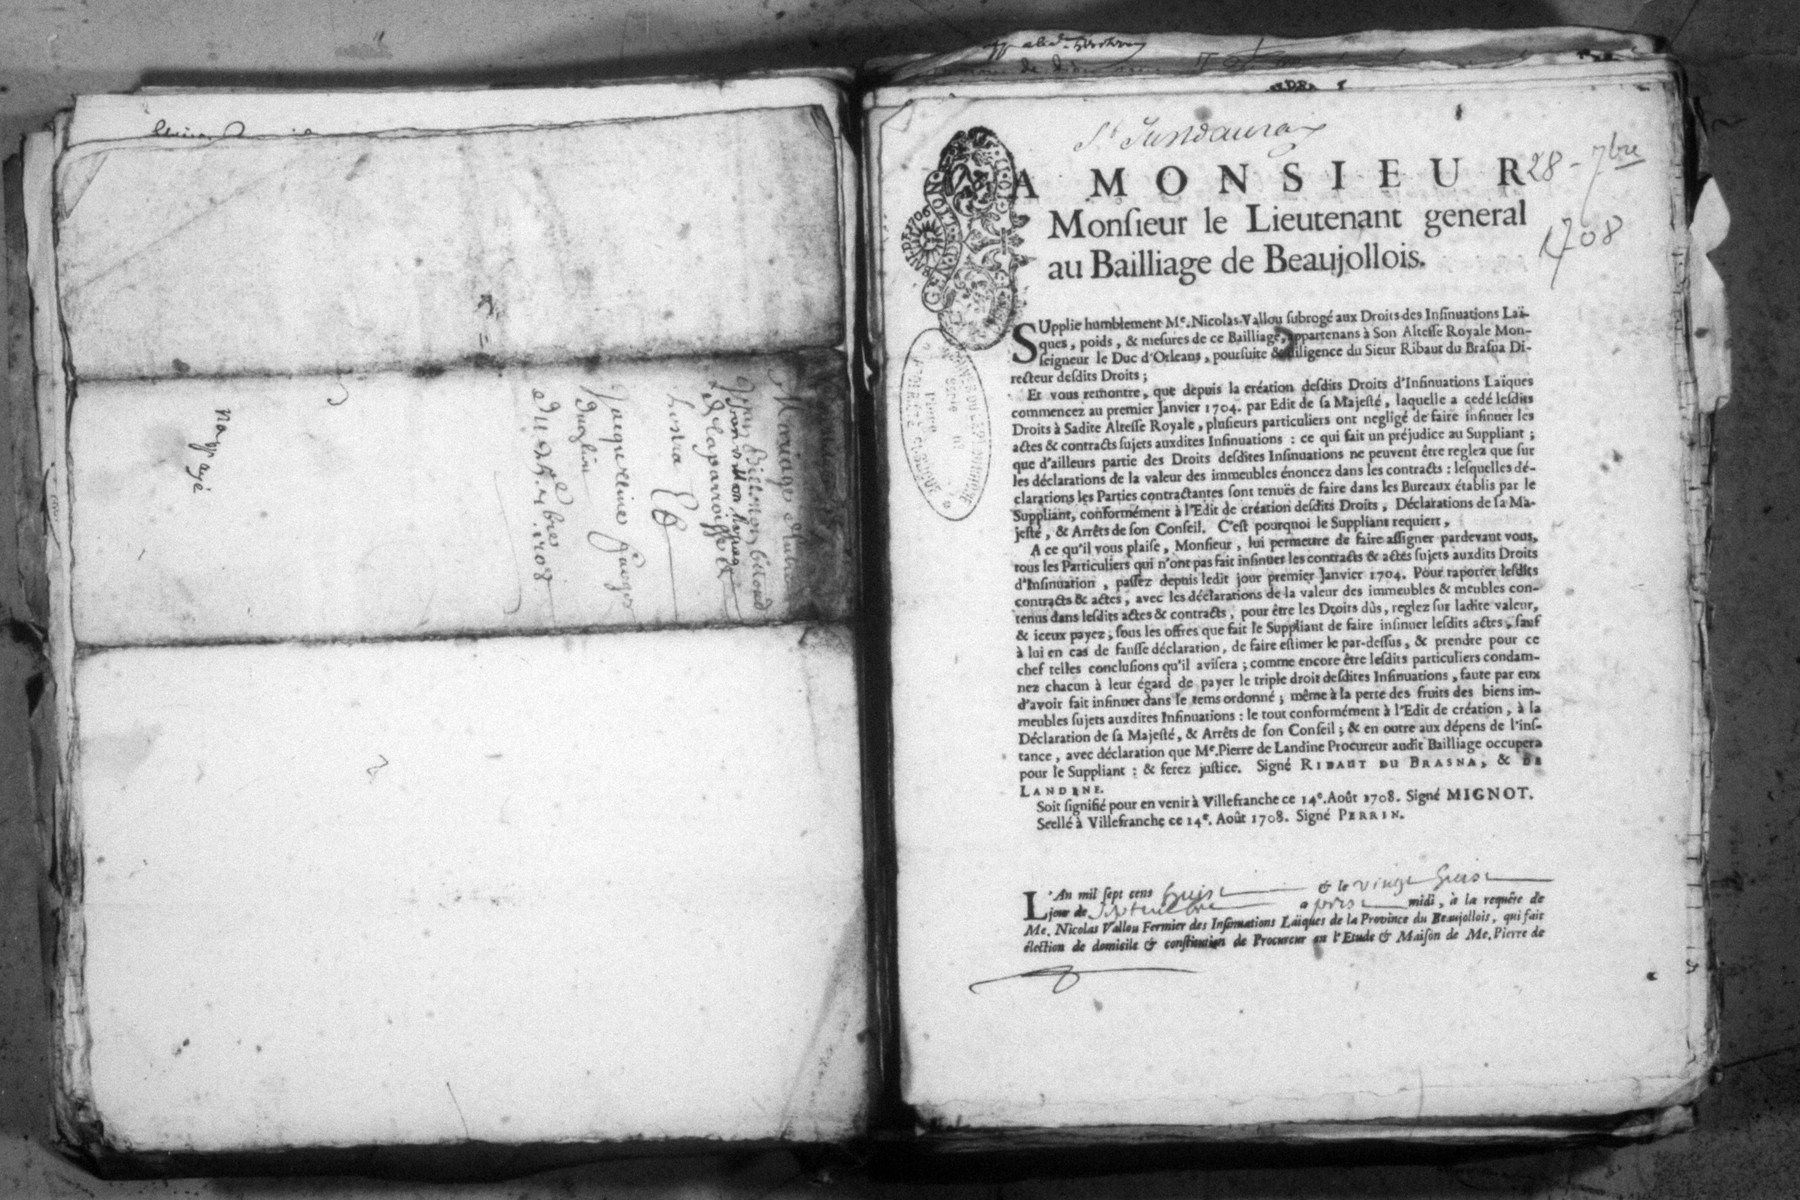 Mariage
Jean Billemon billoud
de la parroisse de
Jacqueline
Du 25.e 7bres
1708
Na payé
28 - 7bre
1708
A MONSIEUR
Monſieur le Lieutenant general
au Bailliage de Beaujollois.
SUpplie humblement Me. Nicolas Vallou ſubrogé aux Droits des Inſinuations Laï-
ques, poids, & meſures de ce Bailliage, appartenans à Son Alteſſe Royale Mon-
ſeigneur le Duc d'Orleans, pourſuite & diligence du Sieur Ribaut du Braſna Di-
recteur deſdits Droits ;
Et vous remontre, que depuis la création deſdits Droits d'Inſinuations Laïques
commencez au premier Janvier 1704. par Edit de ſa Majeſté, laquelle a cedé leſdits
Droits à Sadite Alteſſe Royale, pluſieurs particuliers ont negligé de faire inſinuer les
actes & contracts ſujets auxdites Inſinuations : ce qui fait un préjudice au Suppliant ;
que d'ailleurs partie des Droits deſdites Inſinuations ne peuvent être reglez que ſur
les déclarations de la valeur des immeubles énoncez dans les contracts : leſquelles dé-
clarations les Parties contractantes ſont tenuës de faire dans les Bureaux établis par le
Suppliant, conformément à l'Edit de création deſdits Droits, Déclarations de ſa Ma-
jeſté, & Arrêts de ſon Conſeil. C'eſt pourquoi le Suppliant requiert,
A ce qu'il vous plaiſe, Monſieur, lui permettre de faire aſſigner pardevant vous,
tous les Particuliers qui n'ont pas fait inſinuer les contracts & actes ſujets auxdits Droits
d'Inſinuation, paſſez depuis ledit jour premier Janvier 1704. Pour raporter leſdits
contracts & actes, avec les déclarations de la valeur des immeubles & meubles con-
tenus dans leſdits actes & contracts, pour être les Droits dûs, reglez ſur ladite valeur,
& iceux payez, ſous les offres que fait le Suppliant de faire inſinuer leſdits actes, ſauf
à lui en cas de fauſſe déclaration, de faire eſtimer le par-deſſus, & prendre pour ce
chef telles concluſions qu'il aviſera ; comme encore être leſdits particuliers condam-
nez chacun à leur égard de payer le triple droit deſdites Inſinuations, faute par eux
d'avoir fait inſinuer dans le tems ordonné ; même à la perte des fruits des biens im-
meubles ſujets auxdites Inſinuations : le tout conformément à l'Edit de création, à la
Déclaration de ſa Majeſté, & Arrêts de ſon Conſeil ; & en outre aux dépens de l'inſ-
tance, avec déclaration que Me. Pierre de Landine Procureur audit Bailliage occupera
pour le Suppliant : & ferez juſtice. Signé RIBAUT DU BRASNA, & DE
LANDINE.
Soit ſignifié pour en venir à Villefranche ce 14e. Août 1708. Signé MIGNOT.
Scellé à Villefranche ce 14e. Août 1708. Signé PERRIN.
L'An mil ſept cens huit & le vingt huit
jour de Septembre apres midi, à la requête de
Me. Nicolas Vallou Fermier des Inſinuations Laïques de la Province du Beaujollois, qui fait
élection de domicile & conſtitution de Procureur en l'Etude & Maiſon de Me. Pierre de